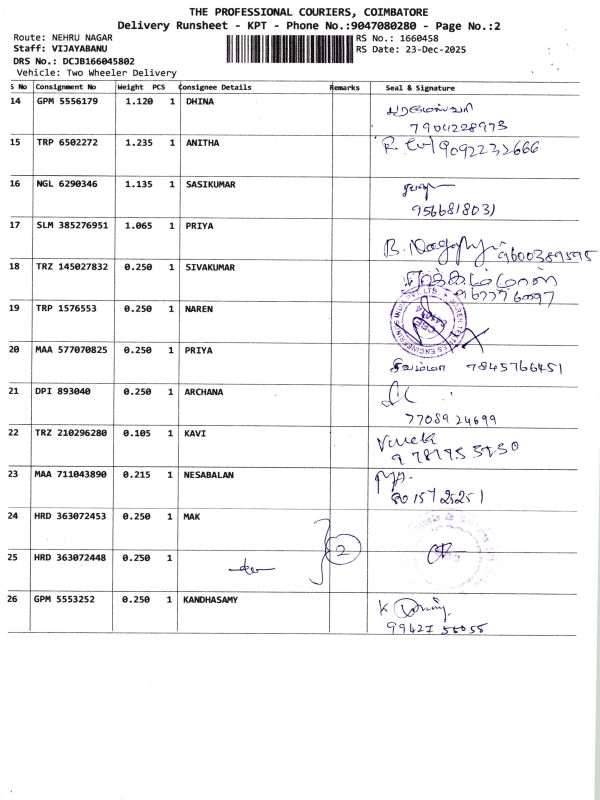 THE PROFESSIONAL COURIERS, COIMBATORE
Delivery Runsheet - KPT - Phone No.:9047080280 - Page No.:2
Route: NEHRU NAGAR RS No.: 1660458
Staff: VIJAYABANU RS Date: 23-Dec-2025
DRS No.: DCJB166045802
Vehicle: Two Wheeler Delivery
S No Consignment No Weight PCS Consignee Details Remarks Seal & Signature
14 GPM 5556179 1.120 1 DHINA
7904228973
15 TRP 6502272 1.235 1 ANITHA 9092232666
16 NGL 6290346 1.135 1 SASIKUMAR
9566818031
17 SLM 385276951 1.065 1 PRIYA
9600389595
18 TRZ 145027832 0.250 1 SIVAKUMAR
19 TRP 1576553 0.250 1 NAREN
20 MAA 577070825 0.250 1 PRIYA
7845766451
21 DPI 893040 0.250 1 ARCHANA
7708924699
22 TRZ 210296280 0.105 1 KAVI
23 MAA 711043890 0.215 1 NESABALAN
8015725251
24 HRD 363072453 0.250 1 MAK
2
25 HRD 363072448 0.250 1
26 GPM 5553252 0.250 1 KANDHASAMY